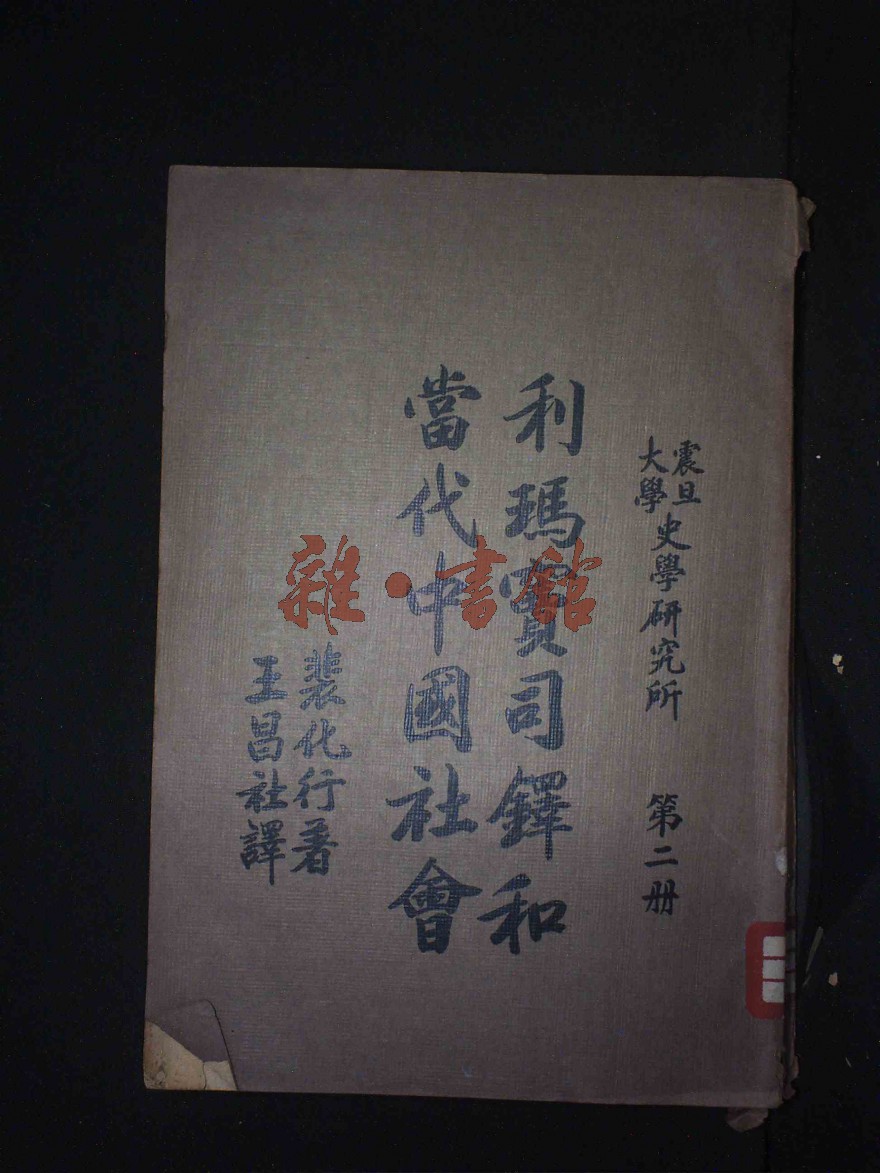 震旦
大學
史學研究所 第二册
利瑪竇司鐸和
當代中國社會
裴化行著
王昌社譯
雜·書館